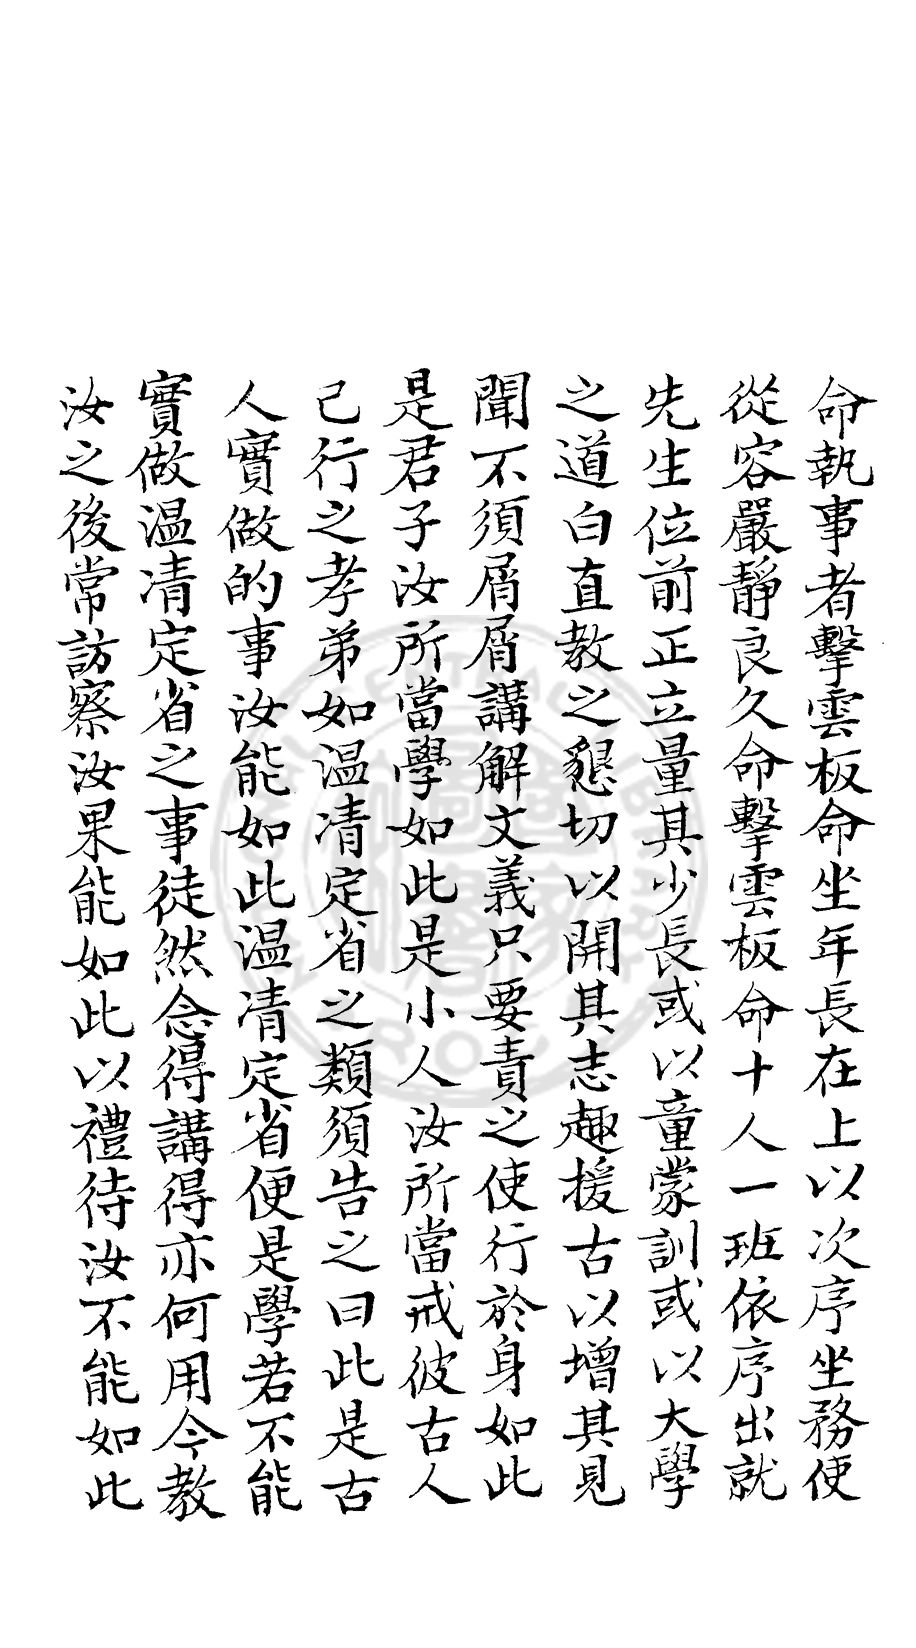 命執事者擊雲板命坐年長在上以次序坐務使
從容嚴靜良久命擊雲板命十人一班依序出就
先生位前正立量其少長或以童蒙訓或以大學
之道白直教之懇切以開其志趣援古以增其見
聞不須屑屑講解文義只要責之使行於身如此
是君子汝所當學如此是小人汝所當戒彼古人
己行之孝弟如温凊定省之類須告之曰此是古
人實做的事汝能如此温凊定省便是學若不能
實做温凊定省之事徒然念得講得亦何用今教
汝之後常訪察汝果能如此以禮待汝不能如此